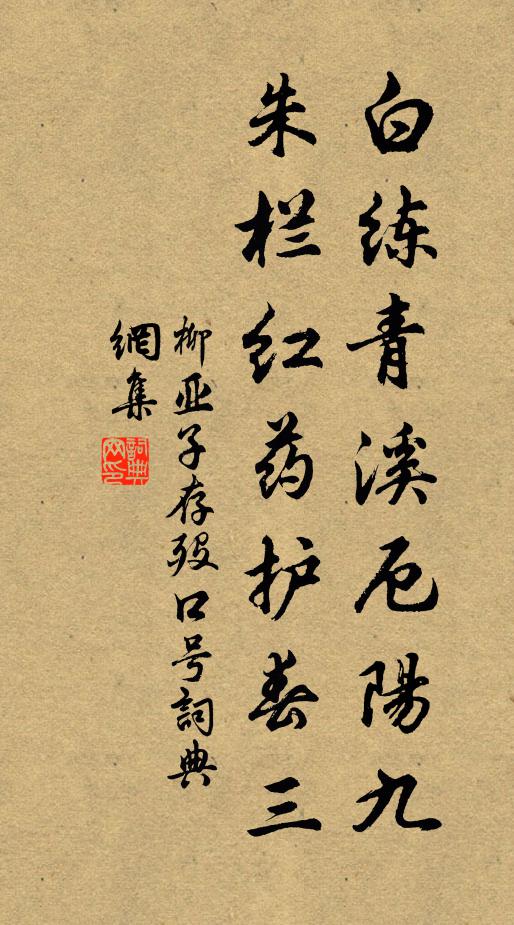 白练青溪厄陽九
朱栏红药护春三
柳亚子存殁口号詞典
網集
詞典
網印